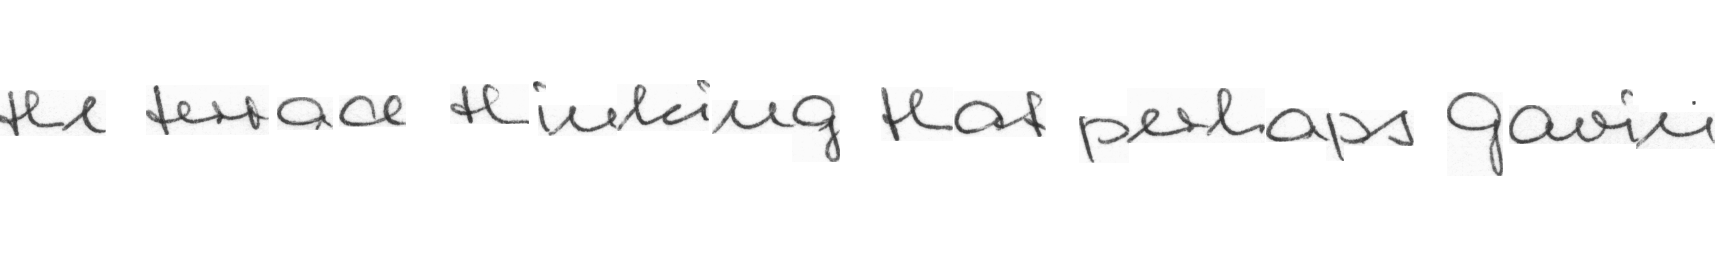 the terrace thinking that perhaps Gavin